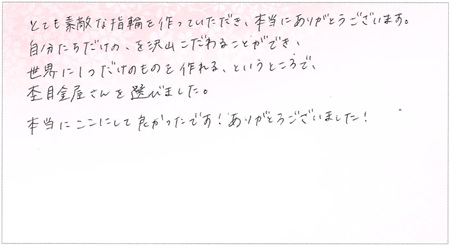 とても素敵な指輪を作っていただき、本当にありがとうございます。
自分たちだけの、を沢山こだわることができ、
世界に1つだけのものを作れる、というところで、
杢目金屋さんを選びました。
本当にここにして良かったです!ありがとうございました!